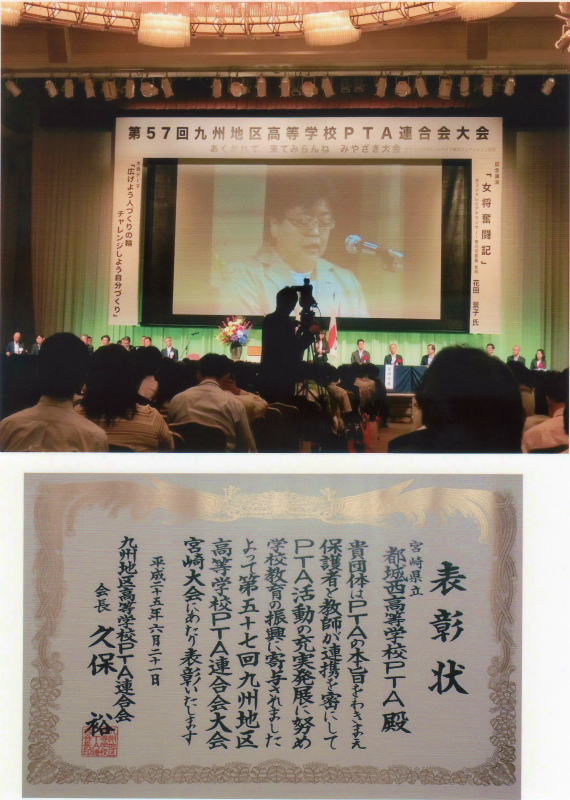 第57回九州地区高等学校PTA連合会大会
あくがれて 来てみらんね みやざき大会
大会テーマ
「広げよう人づくりの輪
チャレンジしよう自分づくり」
記念講演
「女将奮闘記」
花田 景子 氏
表彰状
宮崎県立
都城西高等学校PTA殿
貴団体はPTAの本旨をわきまえ
保護者と教師が連携を密にして
PTA活動の充実発展に努め
学校教育の振興に寄与されました
よって第五十七回九州地区
高等学校PTA連合会大会
宮崎大会にあたり表彰いたします
平成二十五年六月二十一日
九州地区高等学校PTA連合会
会長 久保 裕